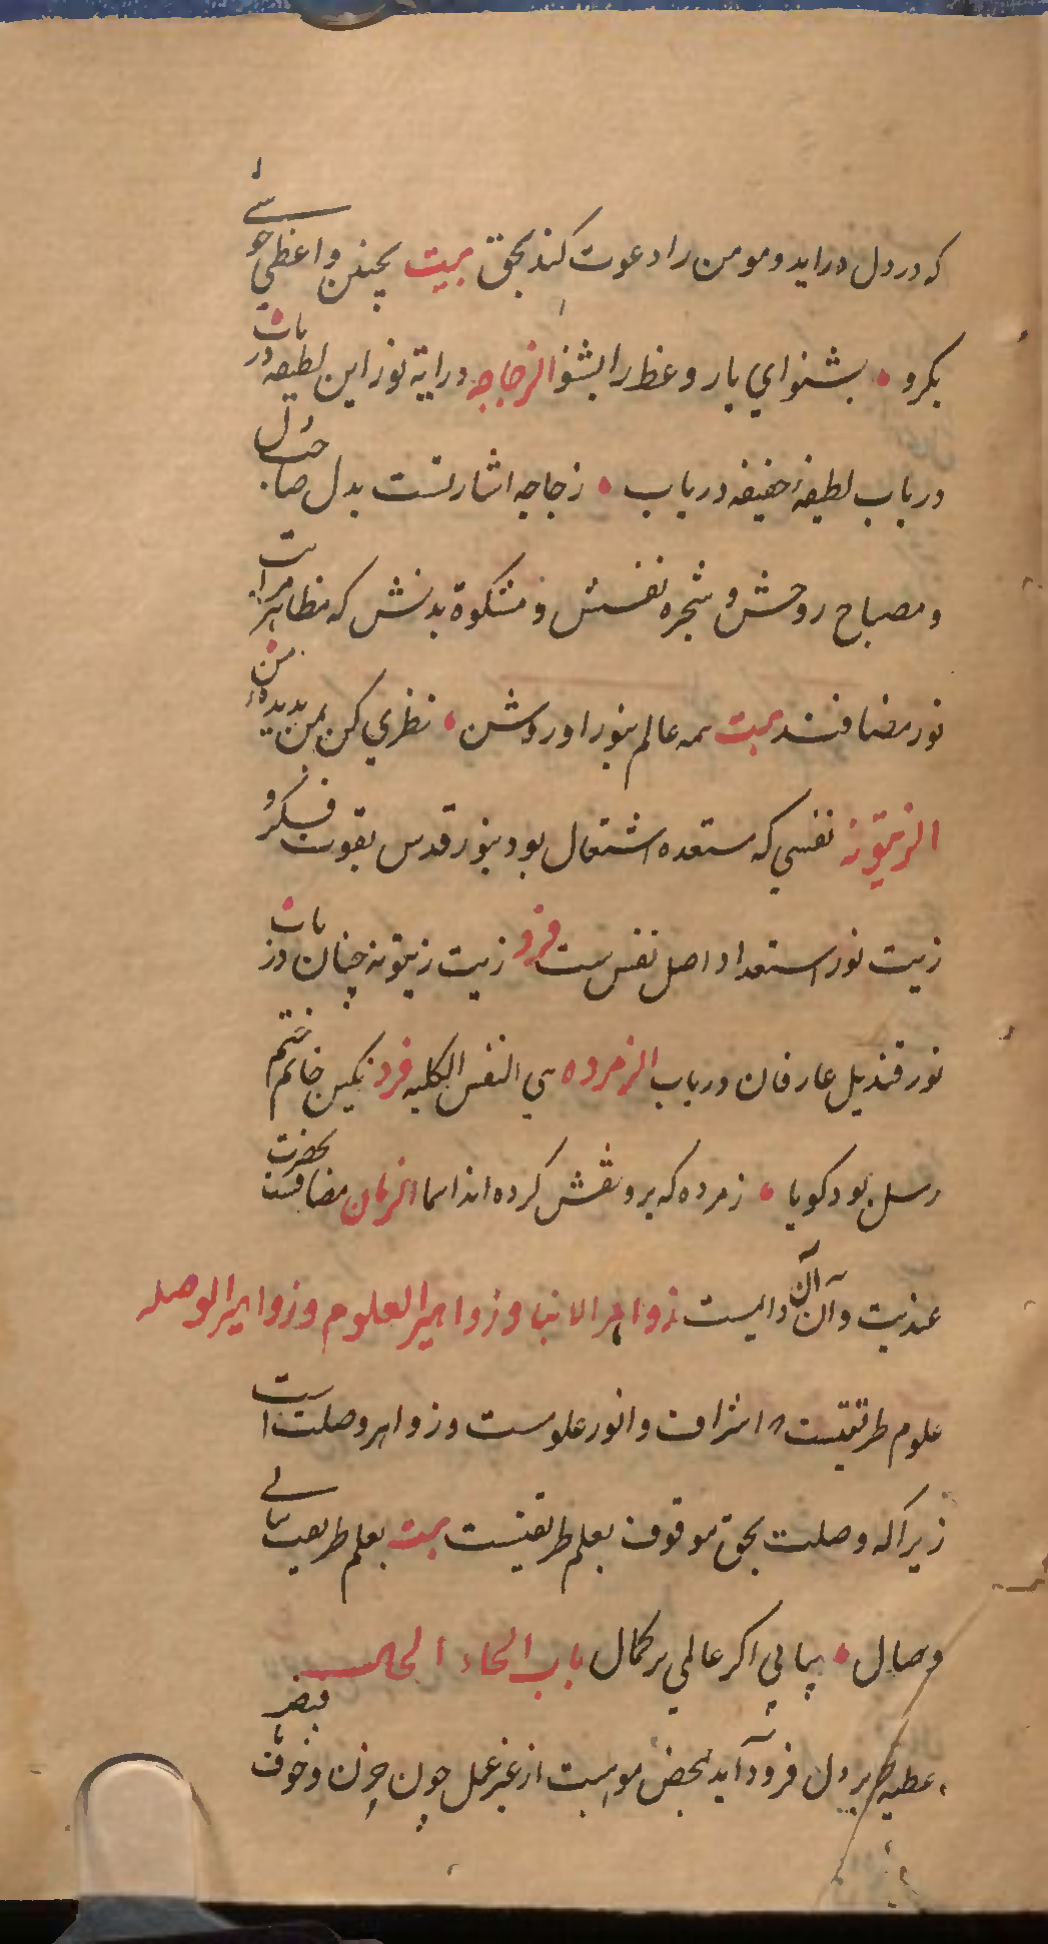 که در دل دراید و مومن را دعوت کند بحق بیت بچنین واعظی جو شی
بکرو • بشنو ای یار وعظ را بشنو الزجاجه در ایة نور این لطیفه در یاب
دریاب لطیفهٔ خفیفه دریاب • زجاجه اشارتست بدل صاحبدل
و مصباح روحش و شجره نفسش و مشکوة بدنش که مظاهر مراتب
نور مضافند بیت همه عالم بنور او روشن • نظری کن بمن بدیدهٔ من
الزیتونه نفسی که مستعده اشتعال بود بنور قدس بقوت فکر و
زیت نور استعداد اصل نفس ست فرد زیت زیتونه چنان دریاب
نور قندیل عارفان دریاب الزمرده هی النفس الکلیه فرد نکین خاتم ختم
رسل بود کویا • زمرده که برو نقش کرده اند اسما الزمان مضافست بحضرت
عندیت و آن آن دایمست زواهر الانبا و زواهر العلوم و زواهر الوصله
علوم طریقتست اشراف و انور علوست و زواهر وصلت است
زیرا که وصلت بحق موقوف بعلم طریقتست بیت بعلم طریقت
وصال • بیابی اکر عالمی بر کمال باب الحاء الحال
عطیه بر دل فرود آید بمحض موهبت از غیر عمل چون حزن و خوف قبض